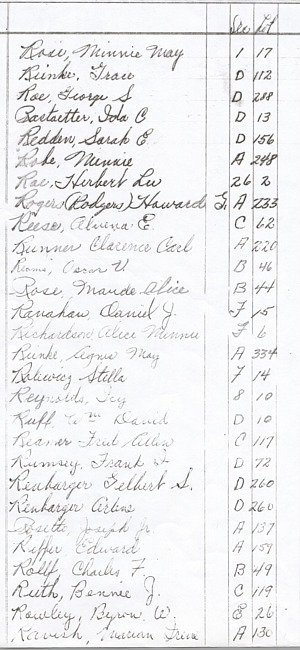 Sec Lot
Rose, Minnie May 1 17
Reinke, Grace D 112
Roe, George S D 288
Sartaetter, Ida C D 13
Redden, Sarah E D 156
Robe, Minnie A 248
Rae, Herbert Lee 26 2
Rogers (Rodgers) Howard A 233
Reese, Alvena E. C 62
Runner Clarence Carl A 220
Reams, Oscar V B 46
Rose, Maude Alice B 44
Ranahan, Daniel J. F 15
Richardson Alice Minnie F 6
Reinke, Agnes May A 334
Stella F 14
Reynolds, Icy 8 10
Ruff, Wm David D 10
Reamer Fred Allen C 117
Rumsey, Frank D 72
Renbarger Delbert S. D 260
Renbarger Arlene D 260
Rosette Joseph Jr. A 137
Riffer Edward A 159
Rolff, Charles F. B 49
Ruth, Bennie J. C 119
Rowley, Byron W. E 26
Ravish, Marian Irene A 130